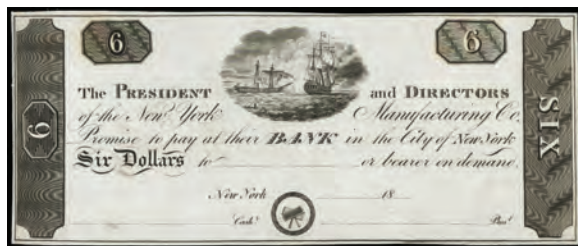 6
6
The PRESIDENT and DIRECTORS
of the New York Manufacturing Co.
Promise to pay at their BANK in the City of New York
Six Dollars to or bearer on demand.
New York 18
Cash.r Pres.t
6
SIX